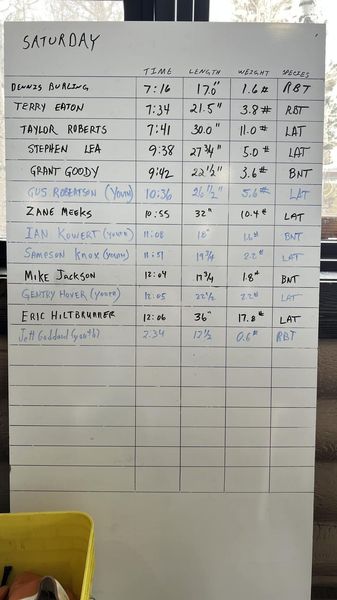 SATURDAY
TIME LENGTH WEIGHT SPECIES
DENNIS BURLING 7:16 17.0" 1.6# RBT
TERRY EATON 7:34 21.5" 3.8# RBT
TAYLOR ROBERTS 7:41 30.0" 11.0# LAT
STEPHEN LEA 9:38 27 3/4" 5.0# LAT
GRANT GOODY 9:42 22 1/2" 3.6# BNT
GUS ROBERTSON (YOUTH) 10:36 26 1/2" 5.6# LAT
ZANE MEEKS 10:55 32" 10.4# LAT
IAN KOWERT (YOUTH) 11:08 18" BNT
SAMPSON KNOX (YOUTH) 11:51 19 3/4 2.2# LAT
MIKE JACKSON 12:04 17 3/4 1.8# BNT
GENTRY HOVER (YOUTH) 12:05 22 1/2 2.2# LAT
ERIC HILTBRUNNER 12:06 36" 17.8# LAT
Jett Goddard (youth) 2:34 12 1/2 0.6# RBT